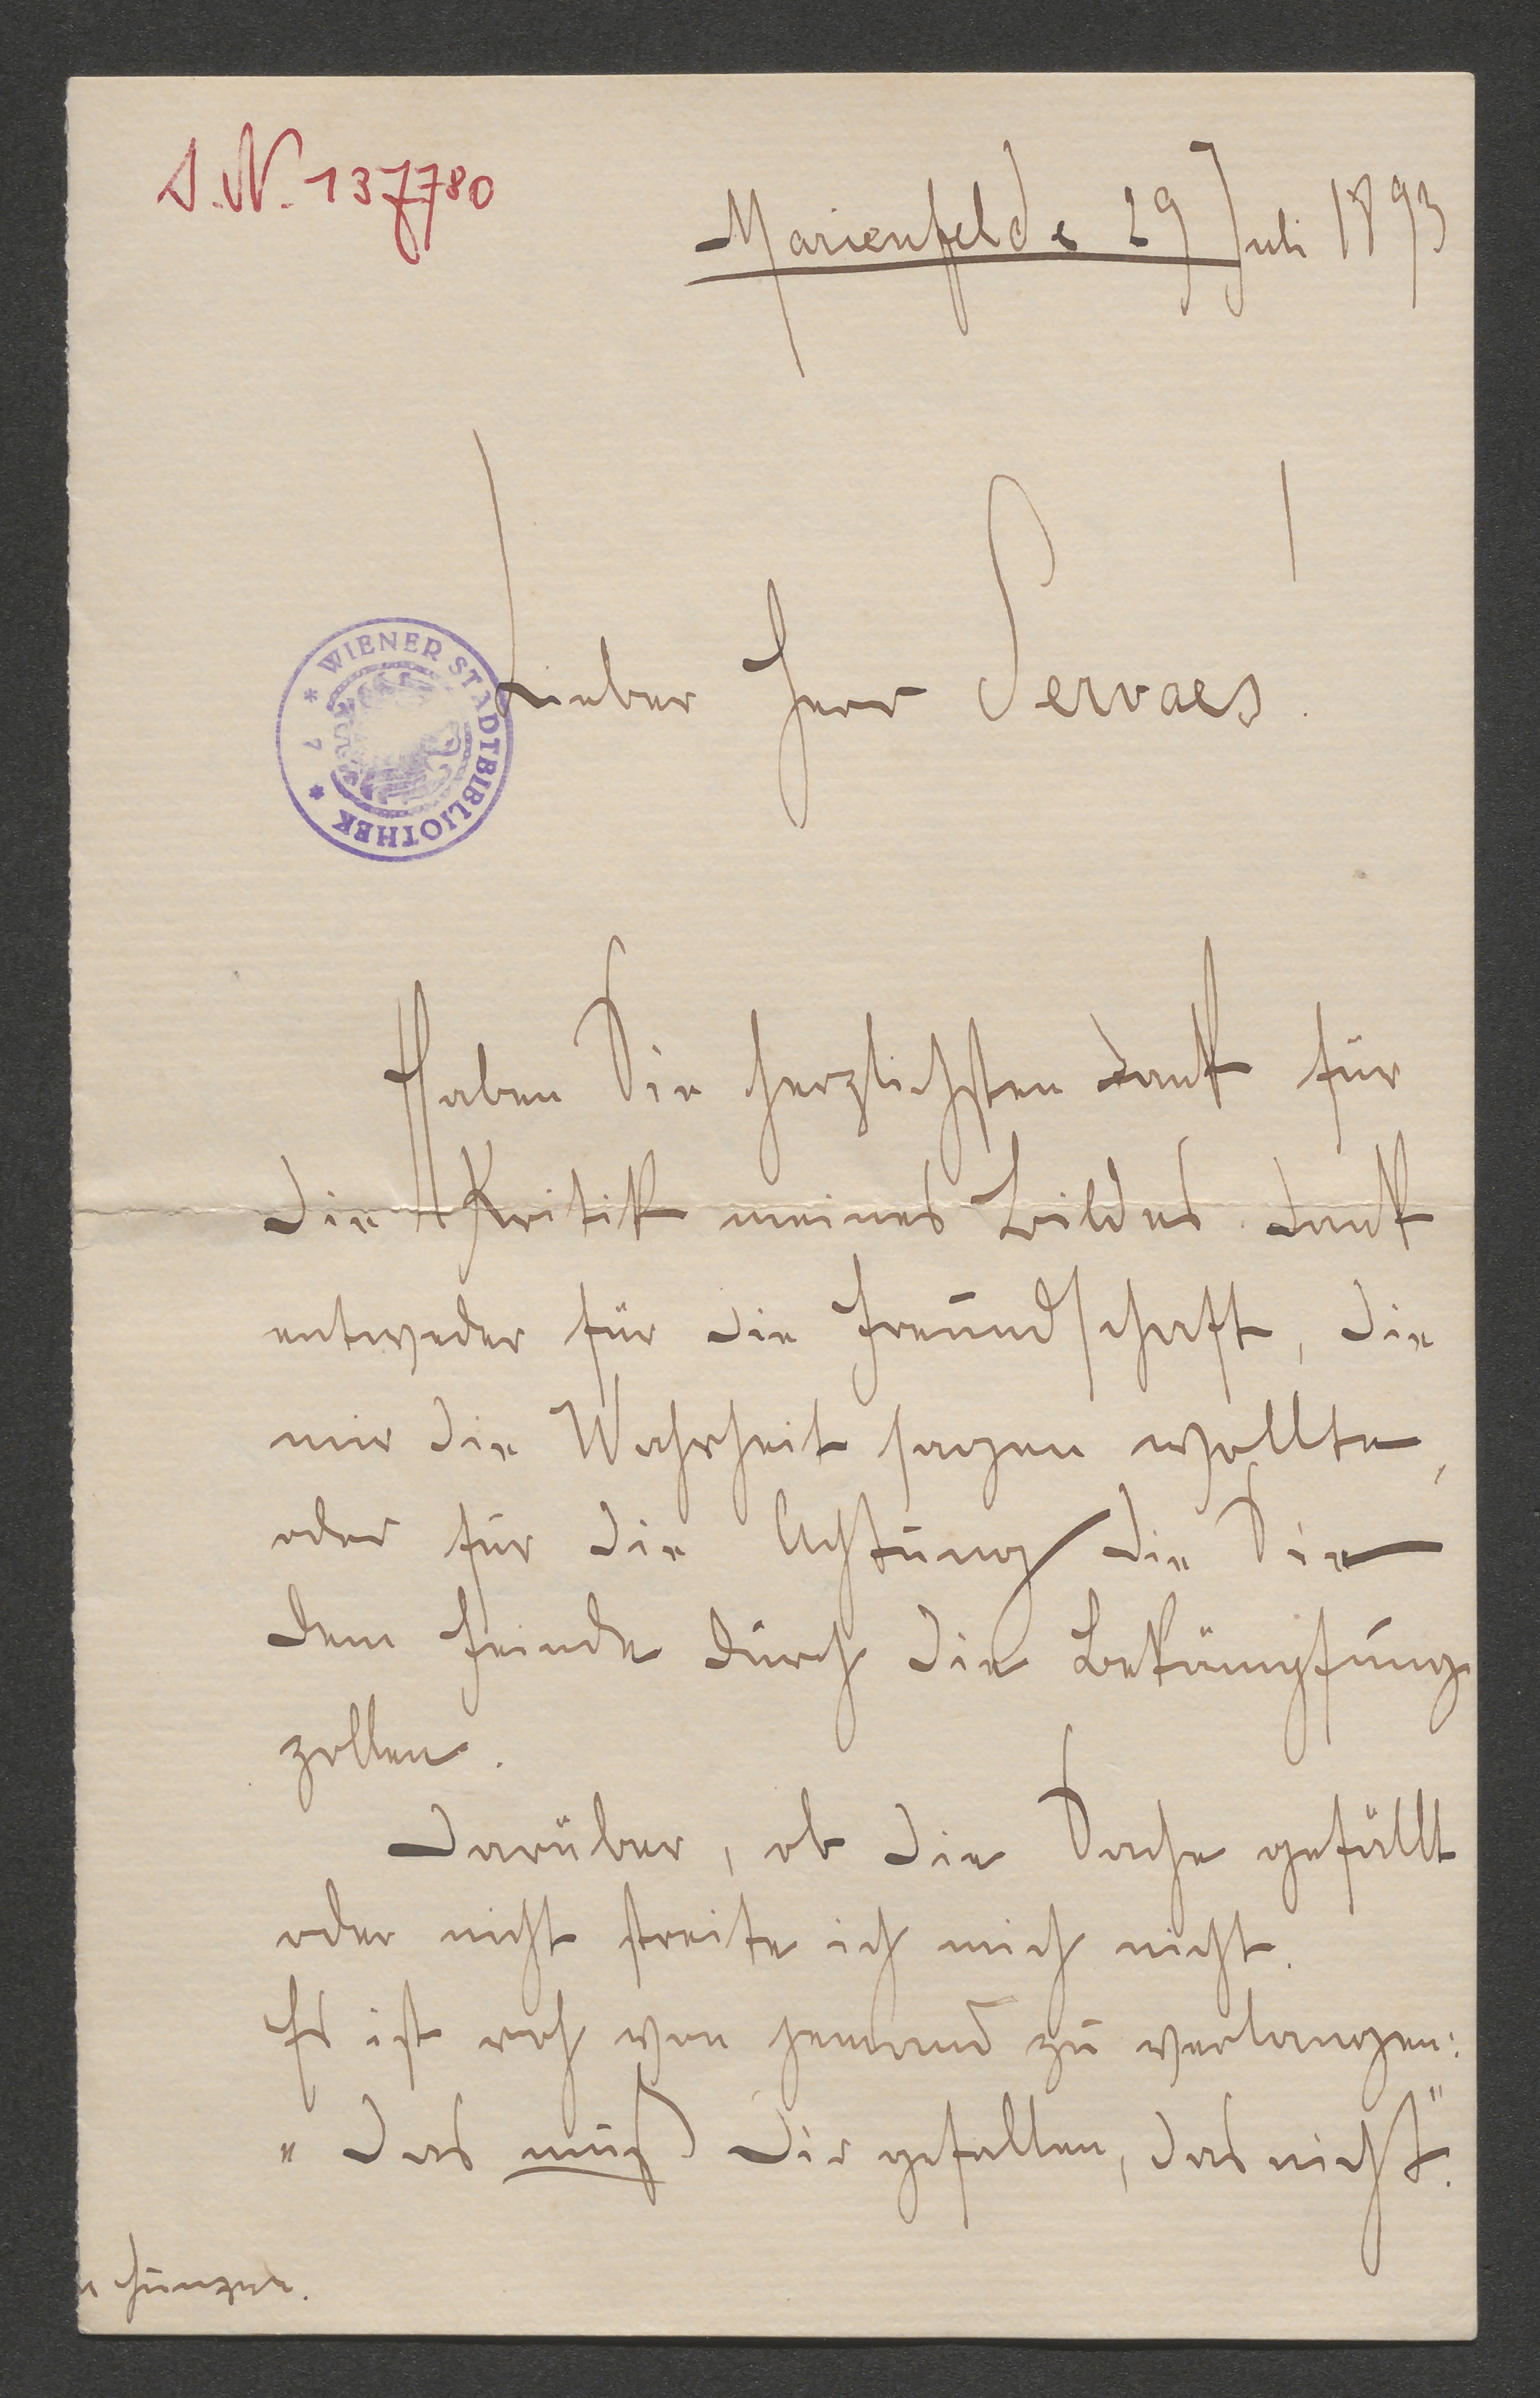 I.N. 137780
Marienfelde 29 Juli 1893
Lieber Herr Servaes!
WIENER STADTBIBLIOTHEK
7
Haben Sie herzlichsten Dank für
die Kritik meines Bildes. Dank
entweder für die Freundschaft, die
mir die Wahrheit sagen wollte,
oder für die Achtung die Sie
dem Feinde durch die Bekämpfung
zollen.
Darüber, ob die Sache gefällt
oder nicht streite ich mich nicht.
Es ist roh von jemand zu verlangen:
„Das muß Dir gefallen, das nicht".